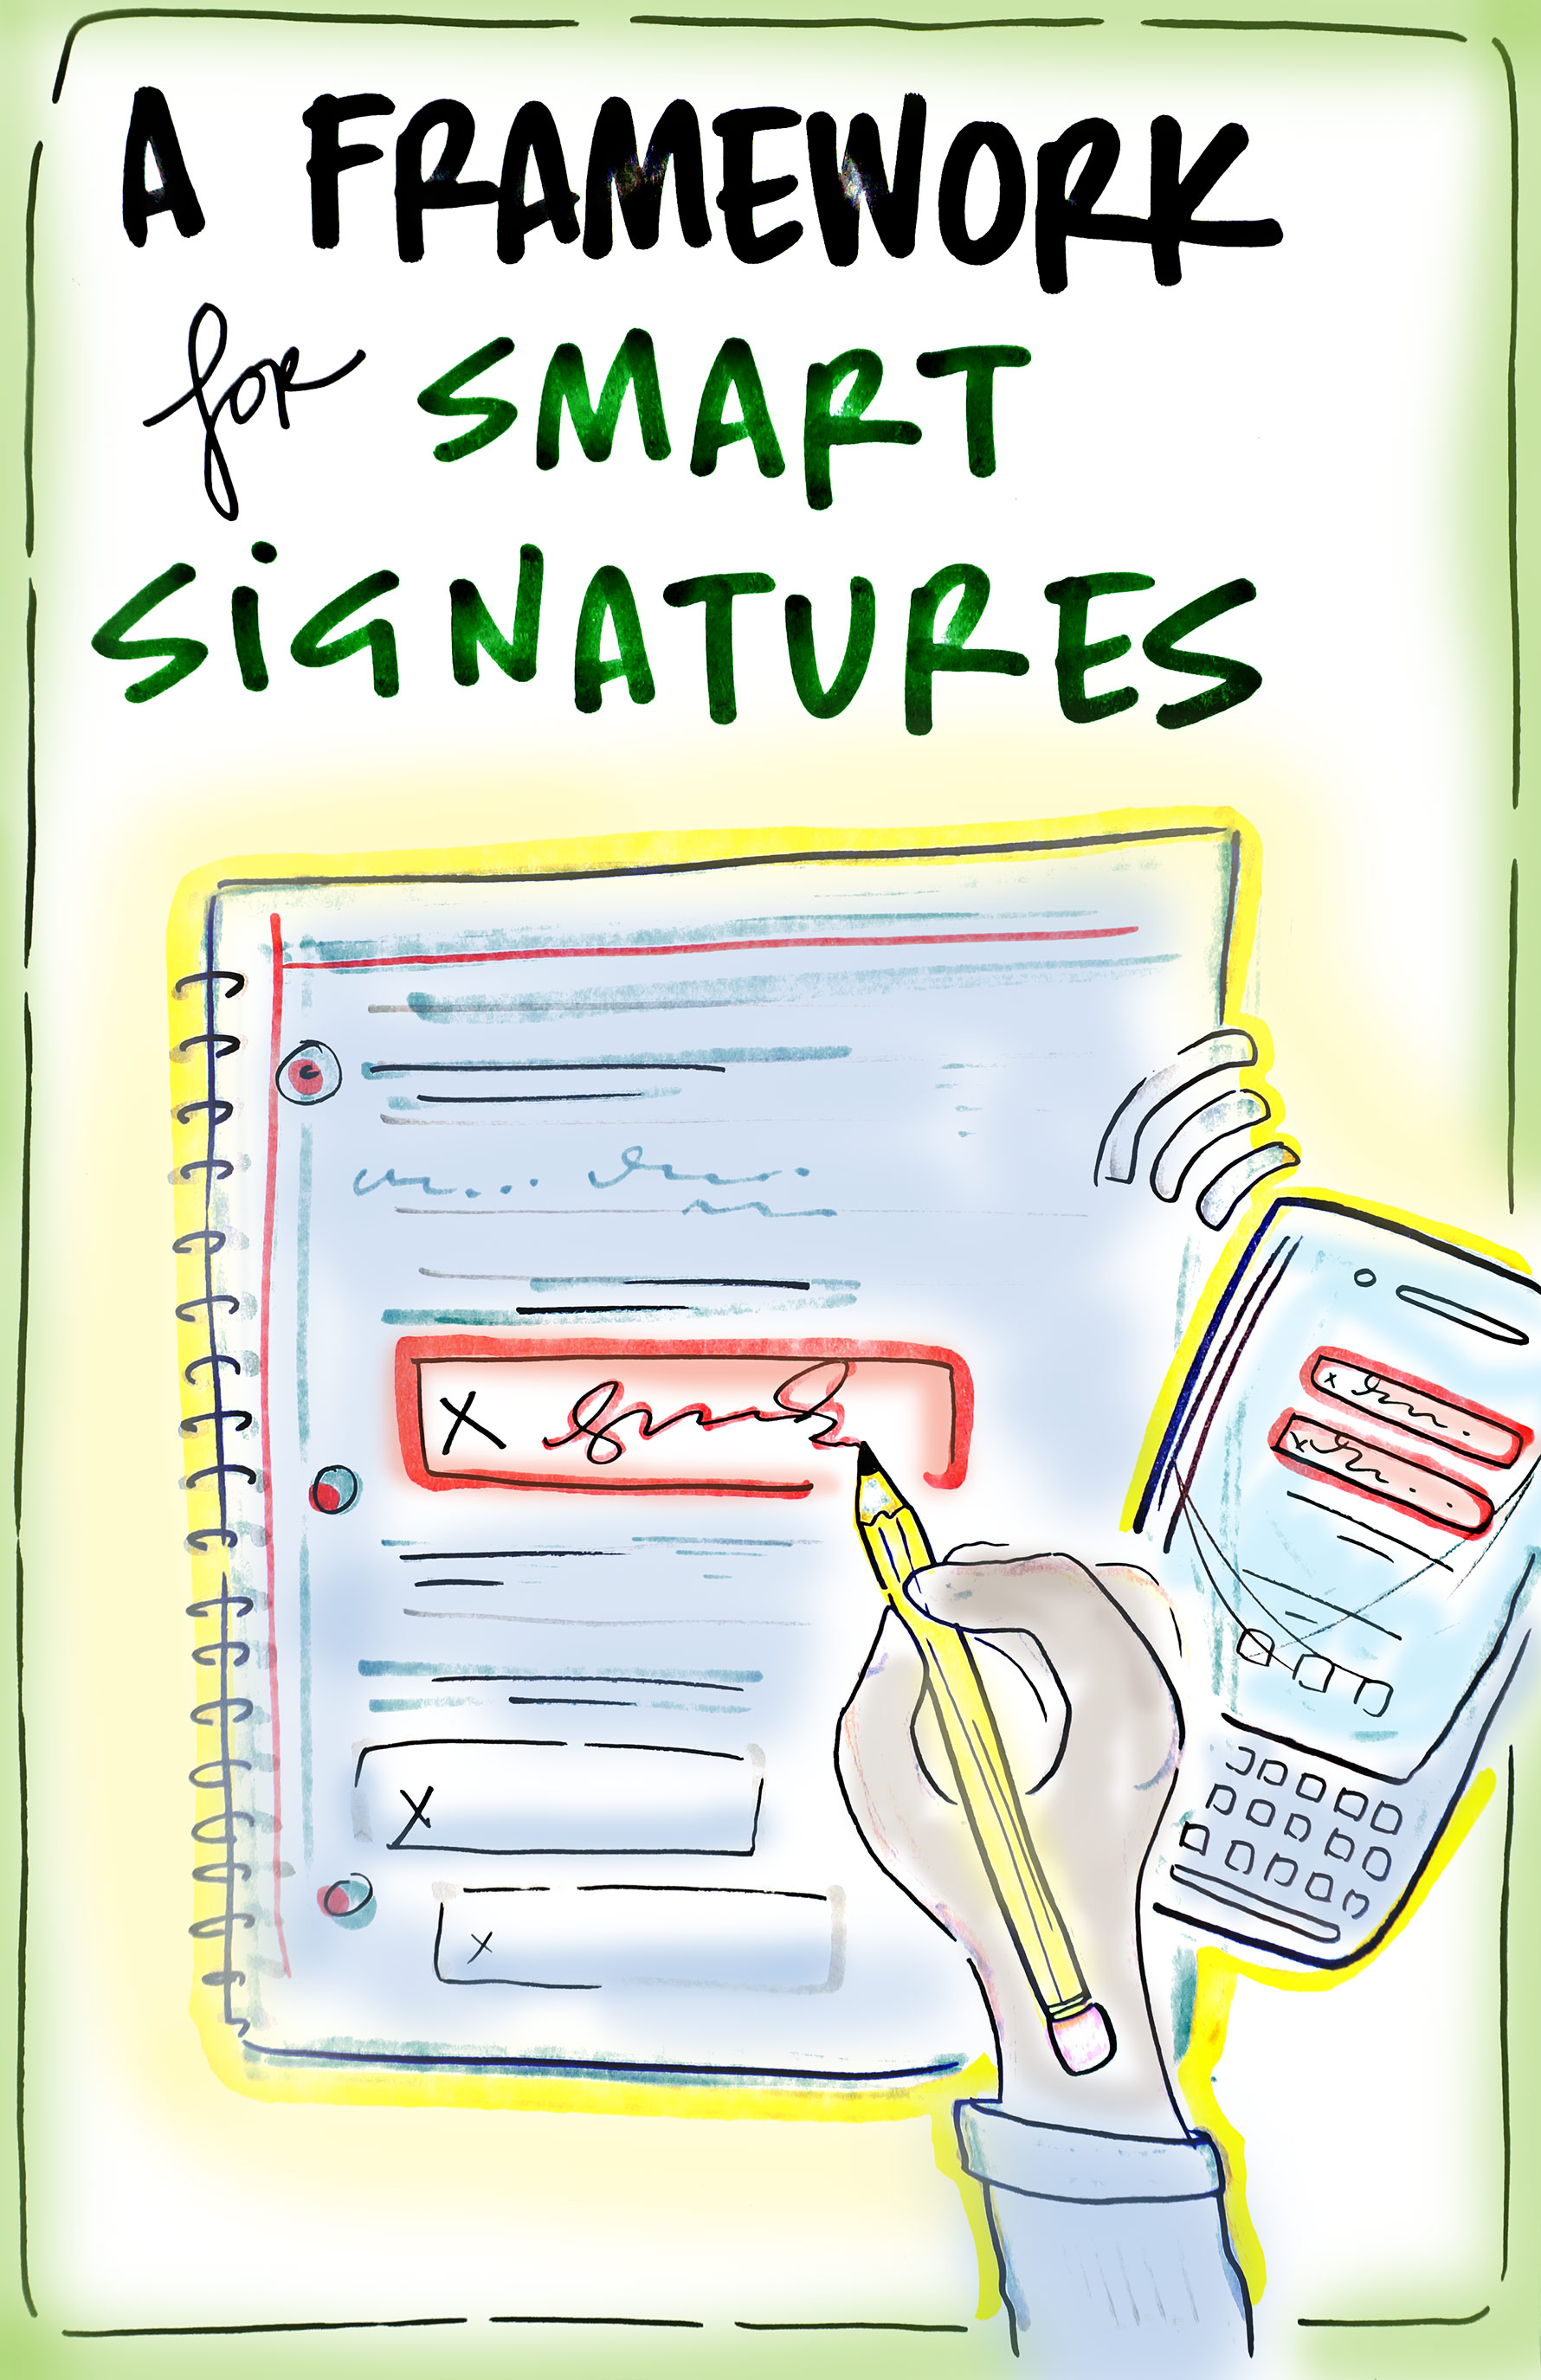 A FRAMEWORK
for SMART
SiGNATURES
X
X
X
x
x